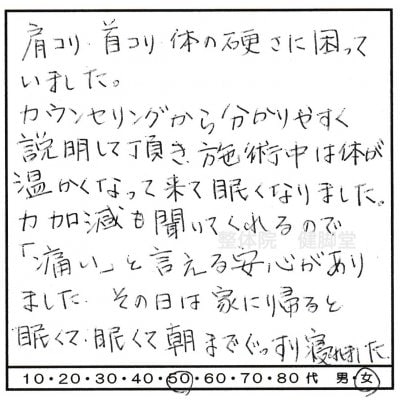 肩コリ・首コリ・体の硬さに困って
いました。
カウンセリングから分かりやすく
説明して頂き、施術中は体が
温かくなって来て眠くなりました。
力加減も聞いてくれるので
整体院 健脚堂
「痛い」と言える安心があり
ました。その日は家に帰ると
眠くて、眠くて朝までぐっすり寝れました。
10・20・30・40・50・60・70・80代 男・女